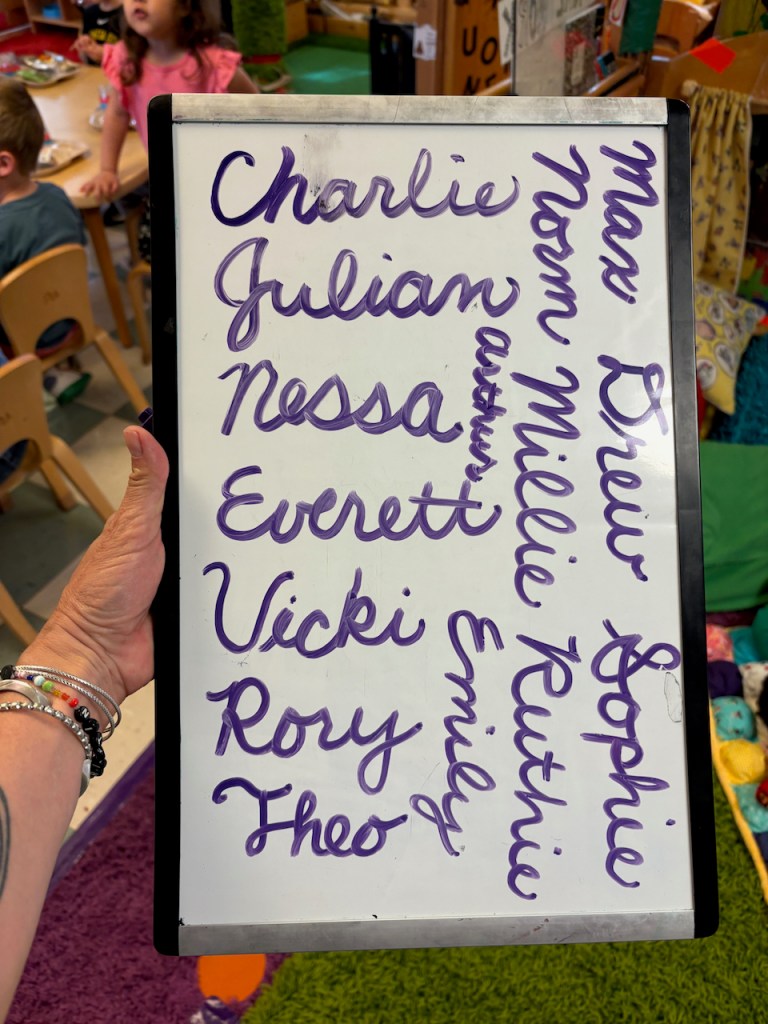 Charlie
Julian
Nessa
Everett
Vicki
Rory
Theo
Arthur
Emily
Norm Millie Ruthie
Max Drew Sophie